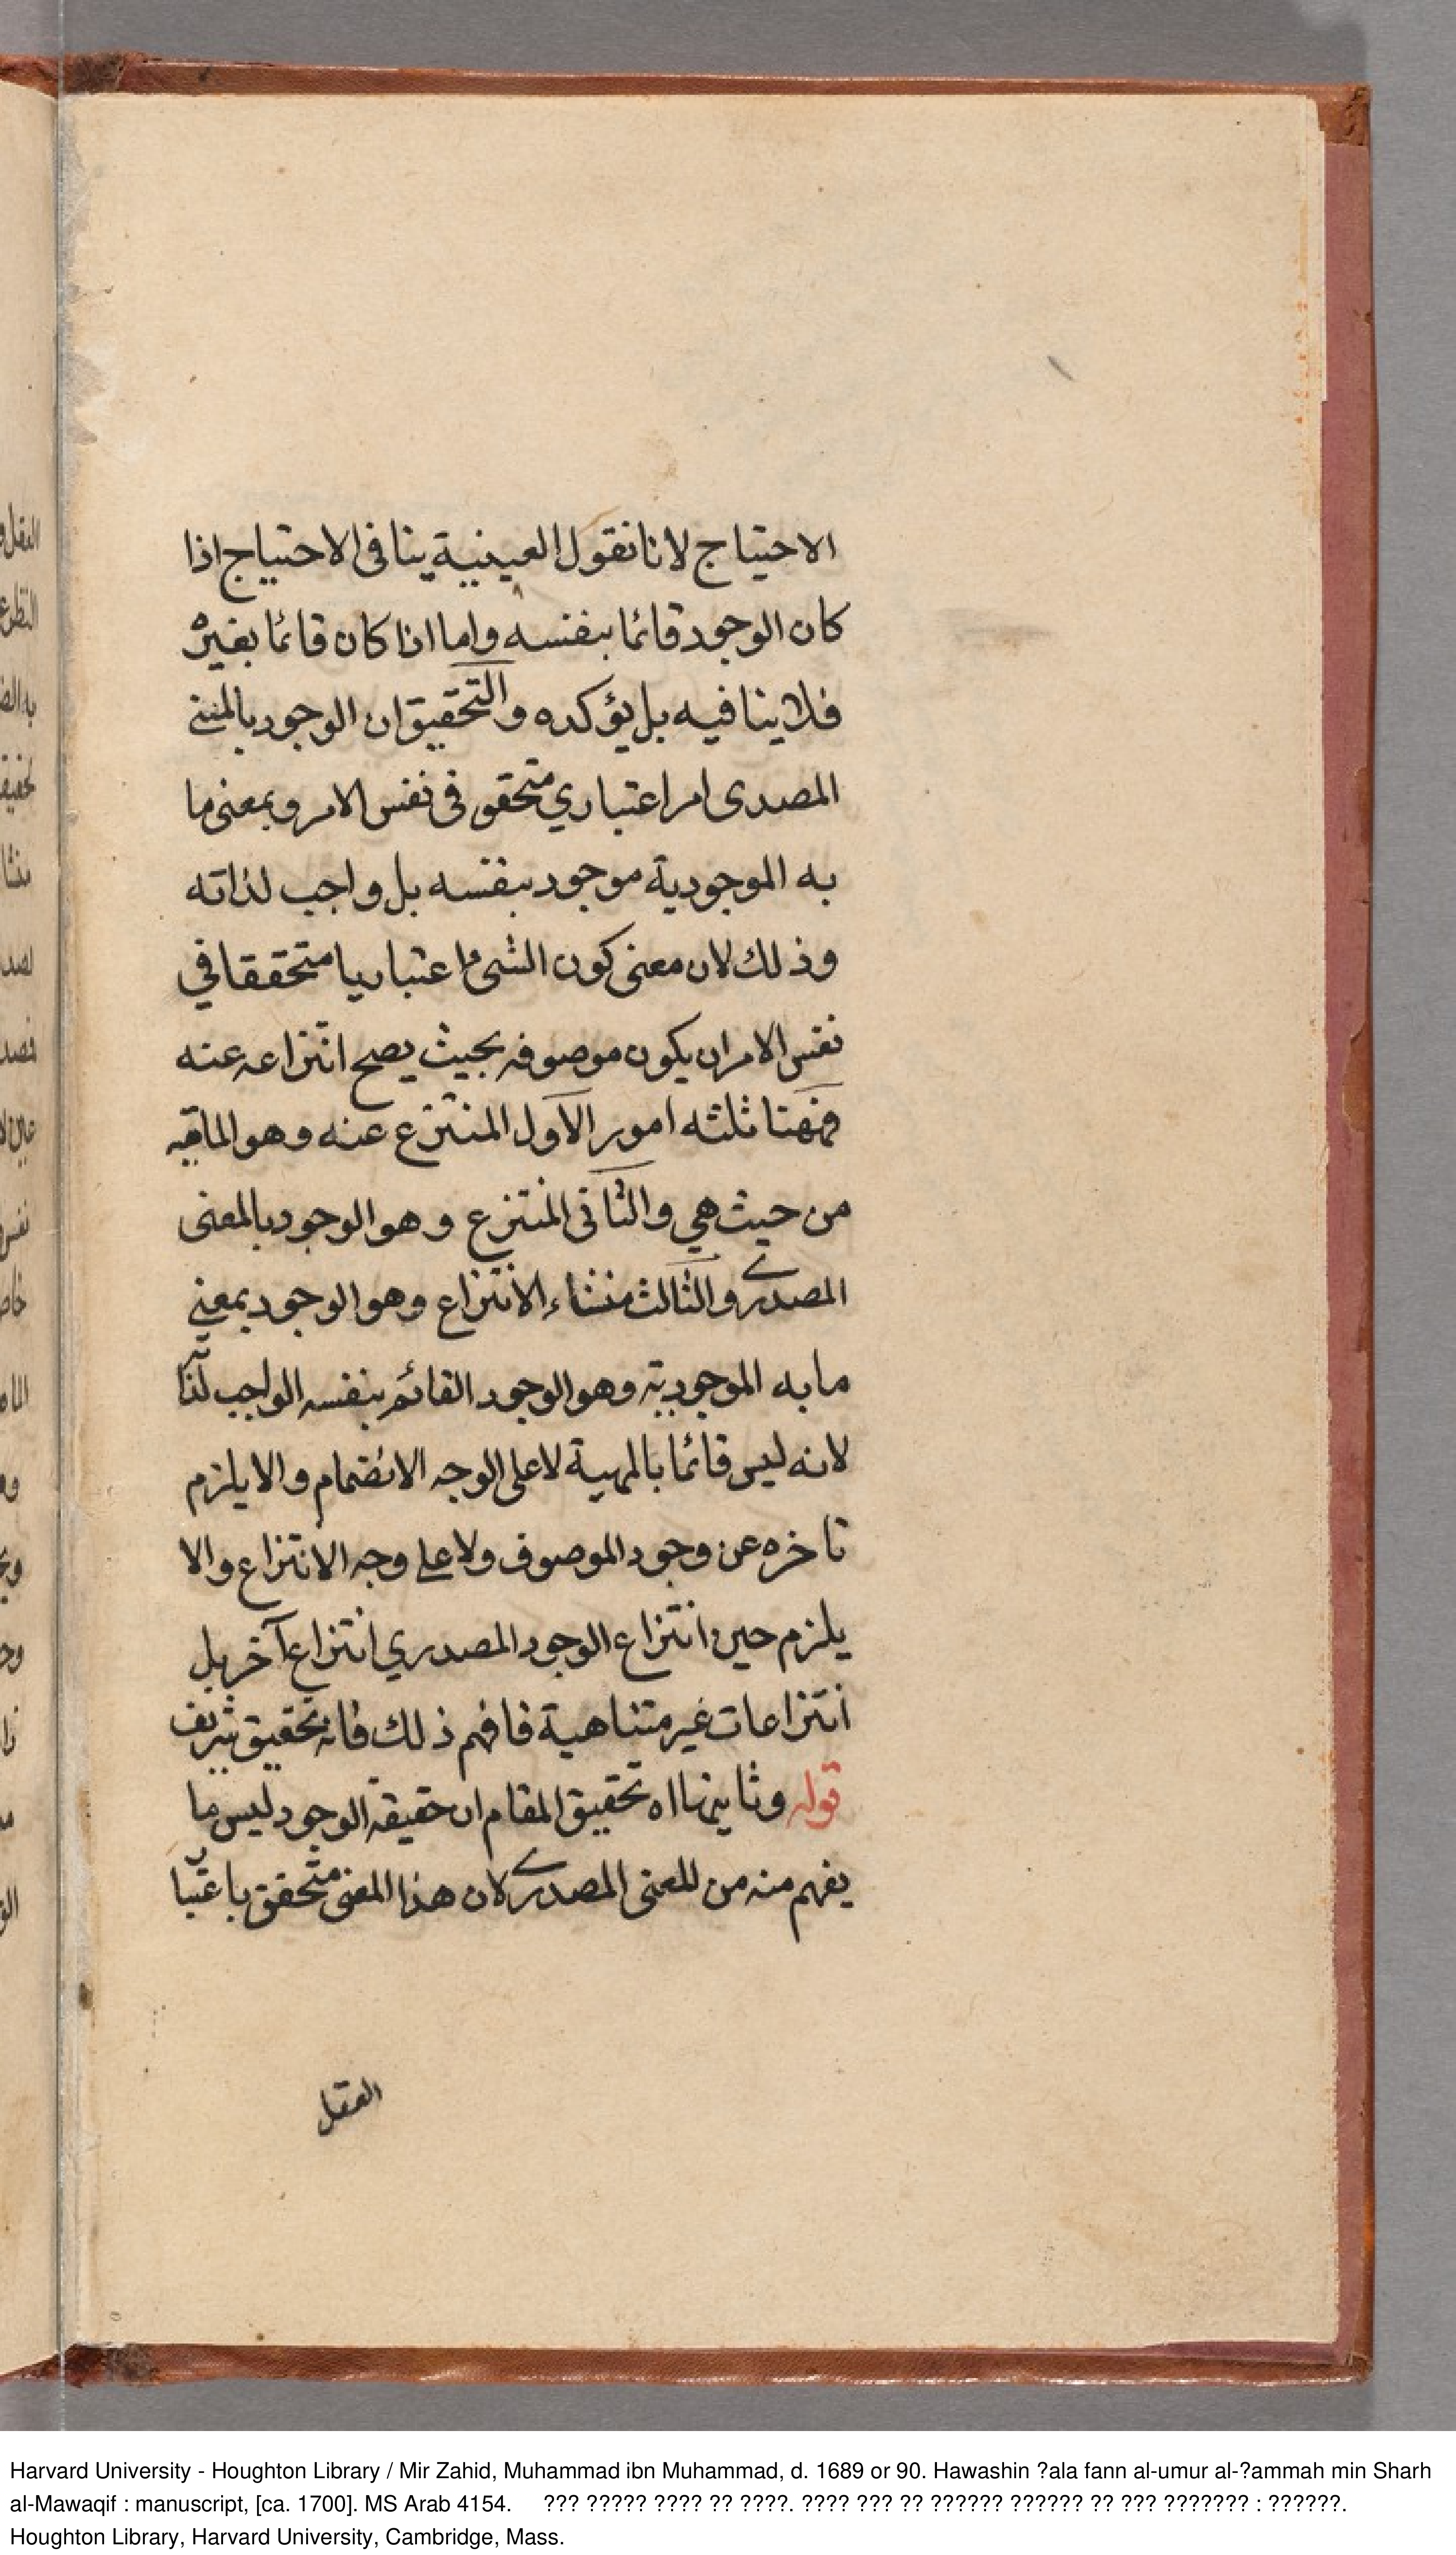 الاحتياج لانا نقول العينية ينافى الاحتياج اذا
كان الوجود قائما بنفسه واما اذا كان قائما بغيره
فلا ينافيه بل يؤكده والتحقيق ان الوجود بالمعنى
المصدى امر اعتباري متحقق فى نفس الامر وبمعنى ما
به الموجودية موجود بنفسه بل واجب لذاته
وذلك لان معنى كون الشى اعتباريا متحققا في
نفس الامر ان يكون موصوفه بحيث يصح انتزاعه عنه
فههنا ثلثه امور الاول المنتزع عنه وهو الماهية
من حيث هي والثانى المنتزع وهو الوجود بالمعنى
المصدرے والثالث منشاء الانتزاع وهو الوجود بمعنى
ما به الموجودية وهو الوجود القائم بنفسه الواجب لذاته
لانه ليس قائما بالمهية لا على الوجه الانضمام والا يلزم
تاخره عن وجود الموصوف ولا على وجه الانتزاع والا
يلزم حين انتزاع الوجود المصدري انتزاع آخر بل
انتزاعات غير متناهية فافهم ذلك فانه تحقيق شريف
قوله وثانيهما اه تحقيق المقام ان حقيقه الوجود ليس ما
يفهم منه من المعنى المصدرے لان هذا المعنى متحقق باعتبا
العقل
Harvard University - Houghton Library / Mir Zahid, Muhammad ibn Muhammad, d. 1689 or 90. Hawashin ?ala fann al-umur al-?ammah min Sharh
al-Mawaqif : manuscript, [ca. 1700]. MS Arab 4154. ??? ????? ???? ?? ????. ???? ??? ?? ?????? ?????? ?? ??? ??????? : ??????.
Houghton Library, Harvard University, Cambridge, Mass.